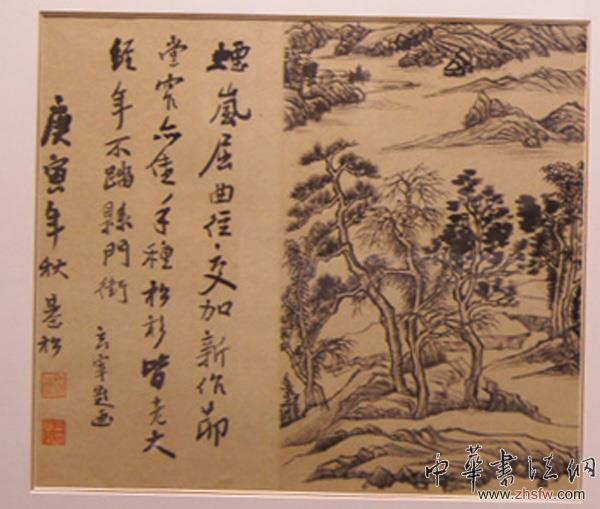 煙嵐屈曲徑交加新作茆
堂窄亦佳手種松杉皆老大
經年不踏縣門街 玄宰題画
庚寅年秋
中華書法網
www.zhsfw.com